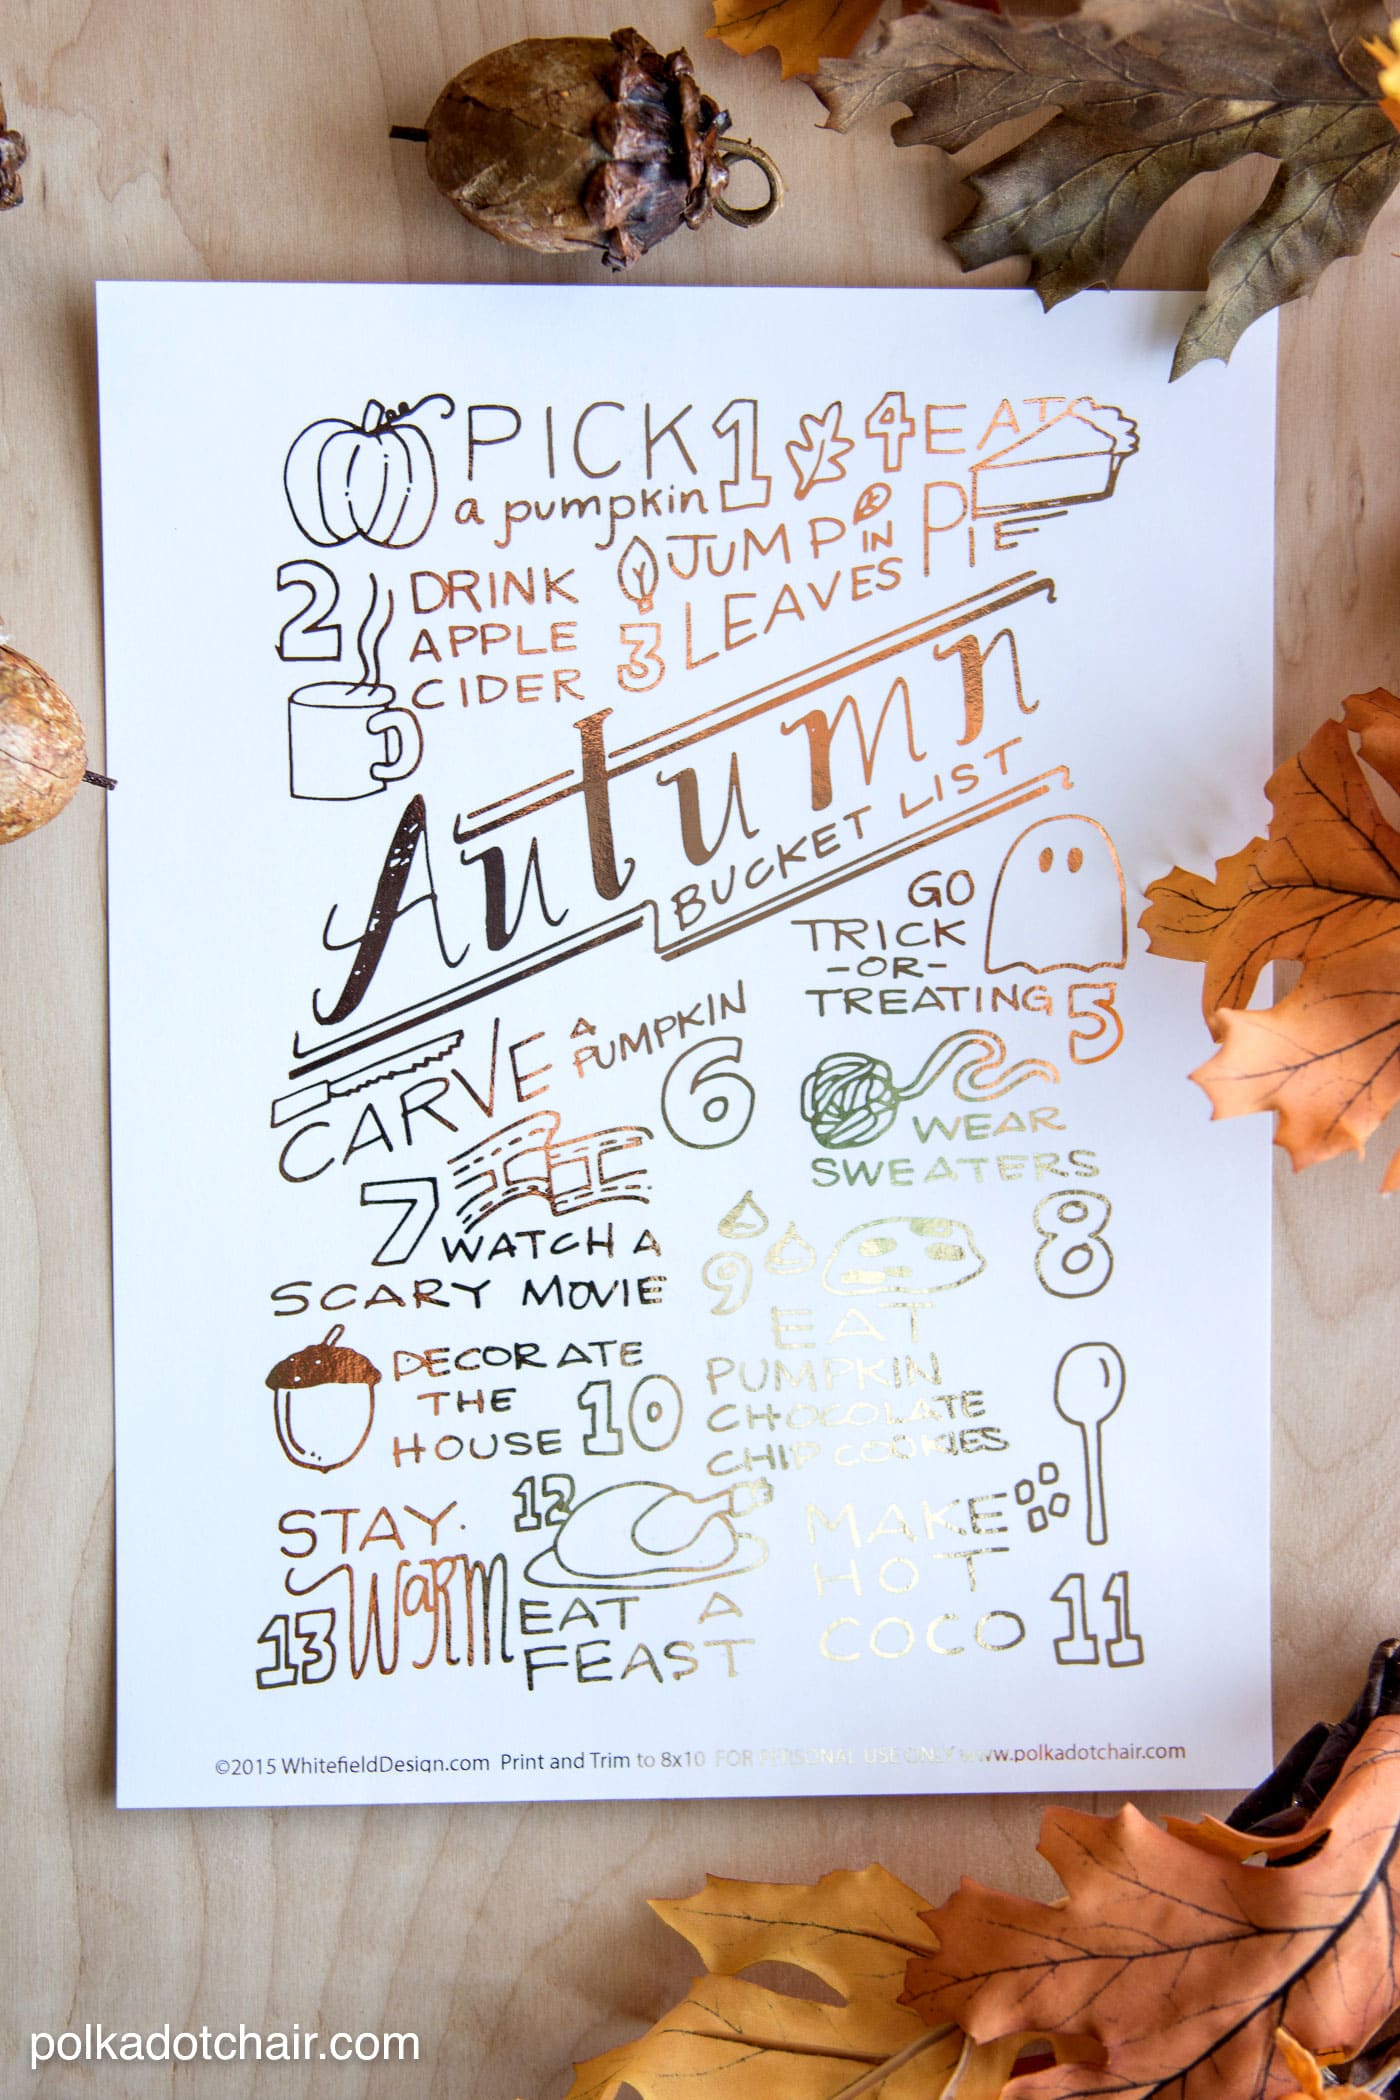 PICK 1
a pumpkin
2 DRINK
APPLE
CIDER
JUMP IN
3 LEAVES
4 EAT
PIE
Autumn
BUCKET LIST
GO
TRICK
-OR-
TREATING 5
CARVE A PUMPKIN 6
7 WATCH A
SCARY MOVIE
WEAR
SWEATERS
8
9
EAT
PUMPKIN
CHOCOLATE
CHIP COOKIES
DECORATE
THE
HOUSE 10
MAKE
HOT
COCO 11
12
EAT A
FEAST
STAY
13 WARM
©2015 WhitefieldDesign.com Print and Trim to 8x10 FOR PERSONAL USE ONLY www.polkadotchair.com
polkadotchair.com